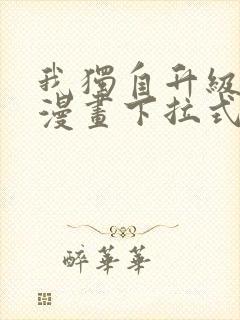 我獨自升級
漫畫下拉式
醉華華